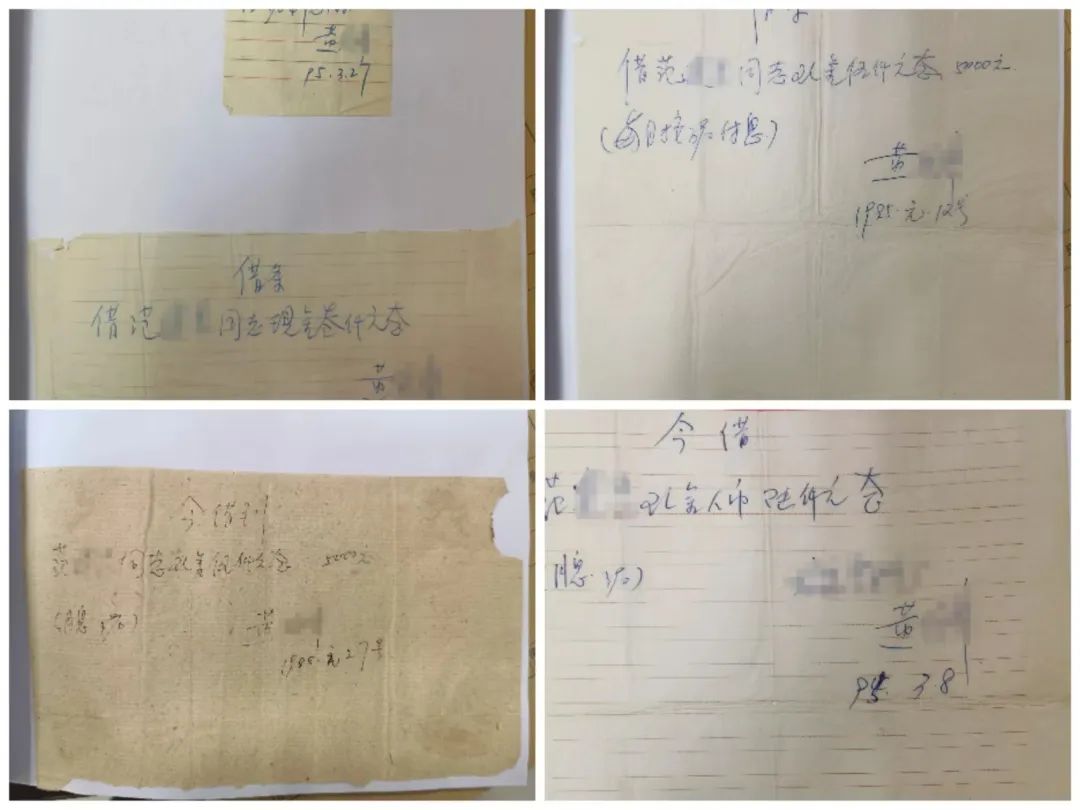 黄
95.3.27
借条
借范 同志现金叁仟元套
黄
借范 同志现金伍仟元套 5000元
(每月按3%付息)
黄
1995.元.12号
今借到
范 同志现金伍仟元套 5000元
(月息3%)
黄
1995.元27号
今借
范 现金人币 仟元套
月息3%)
黄
95.3.8